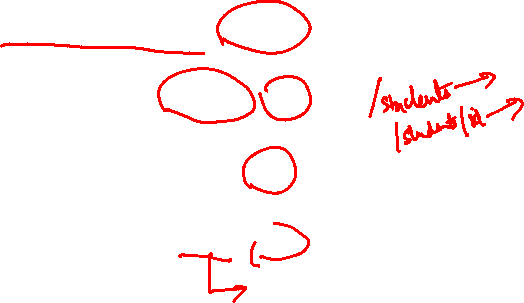 /students
/students/id